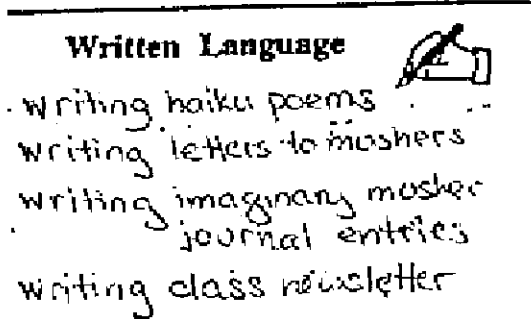 Written Language
writing haiku poems
writing letters to mushers
writing imaginary musher
journal entries
writing class newsletter